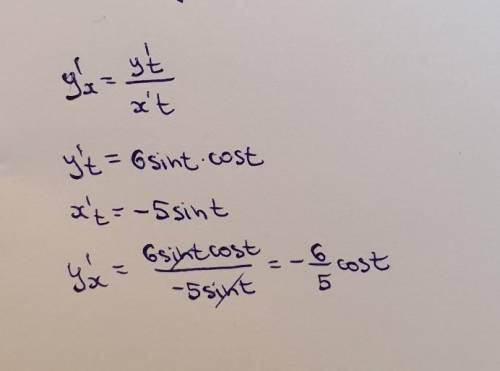 y'x = y't / x't
y't = 6sint·cost
x't = -5sint
y'x = 6sintcost / -5sint = - 6/5 cost